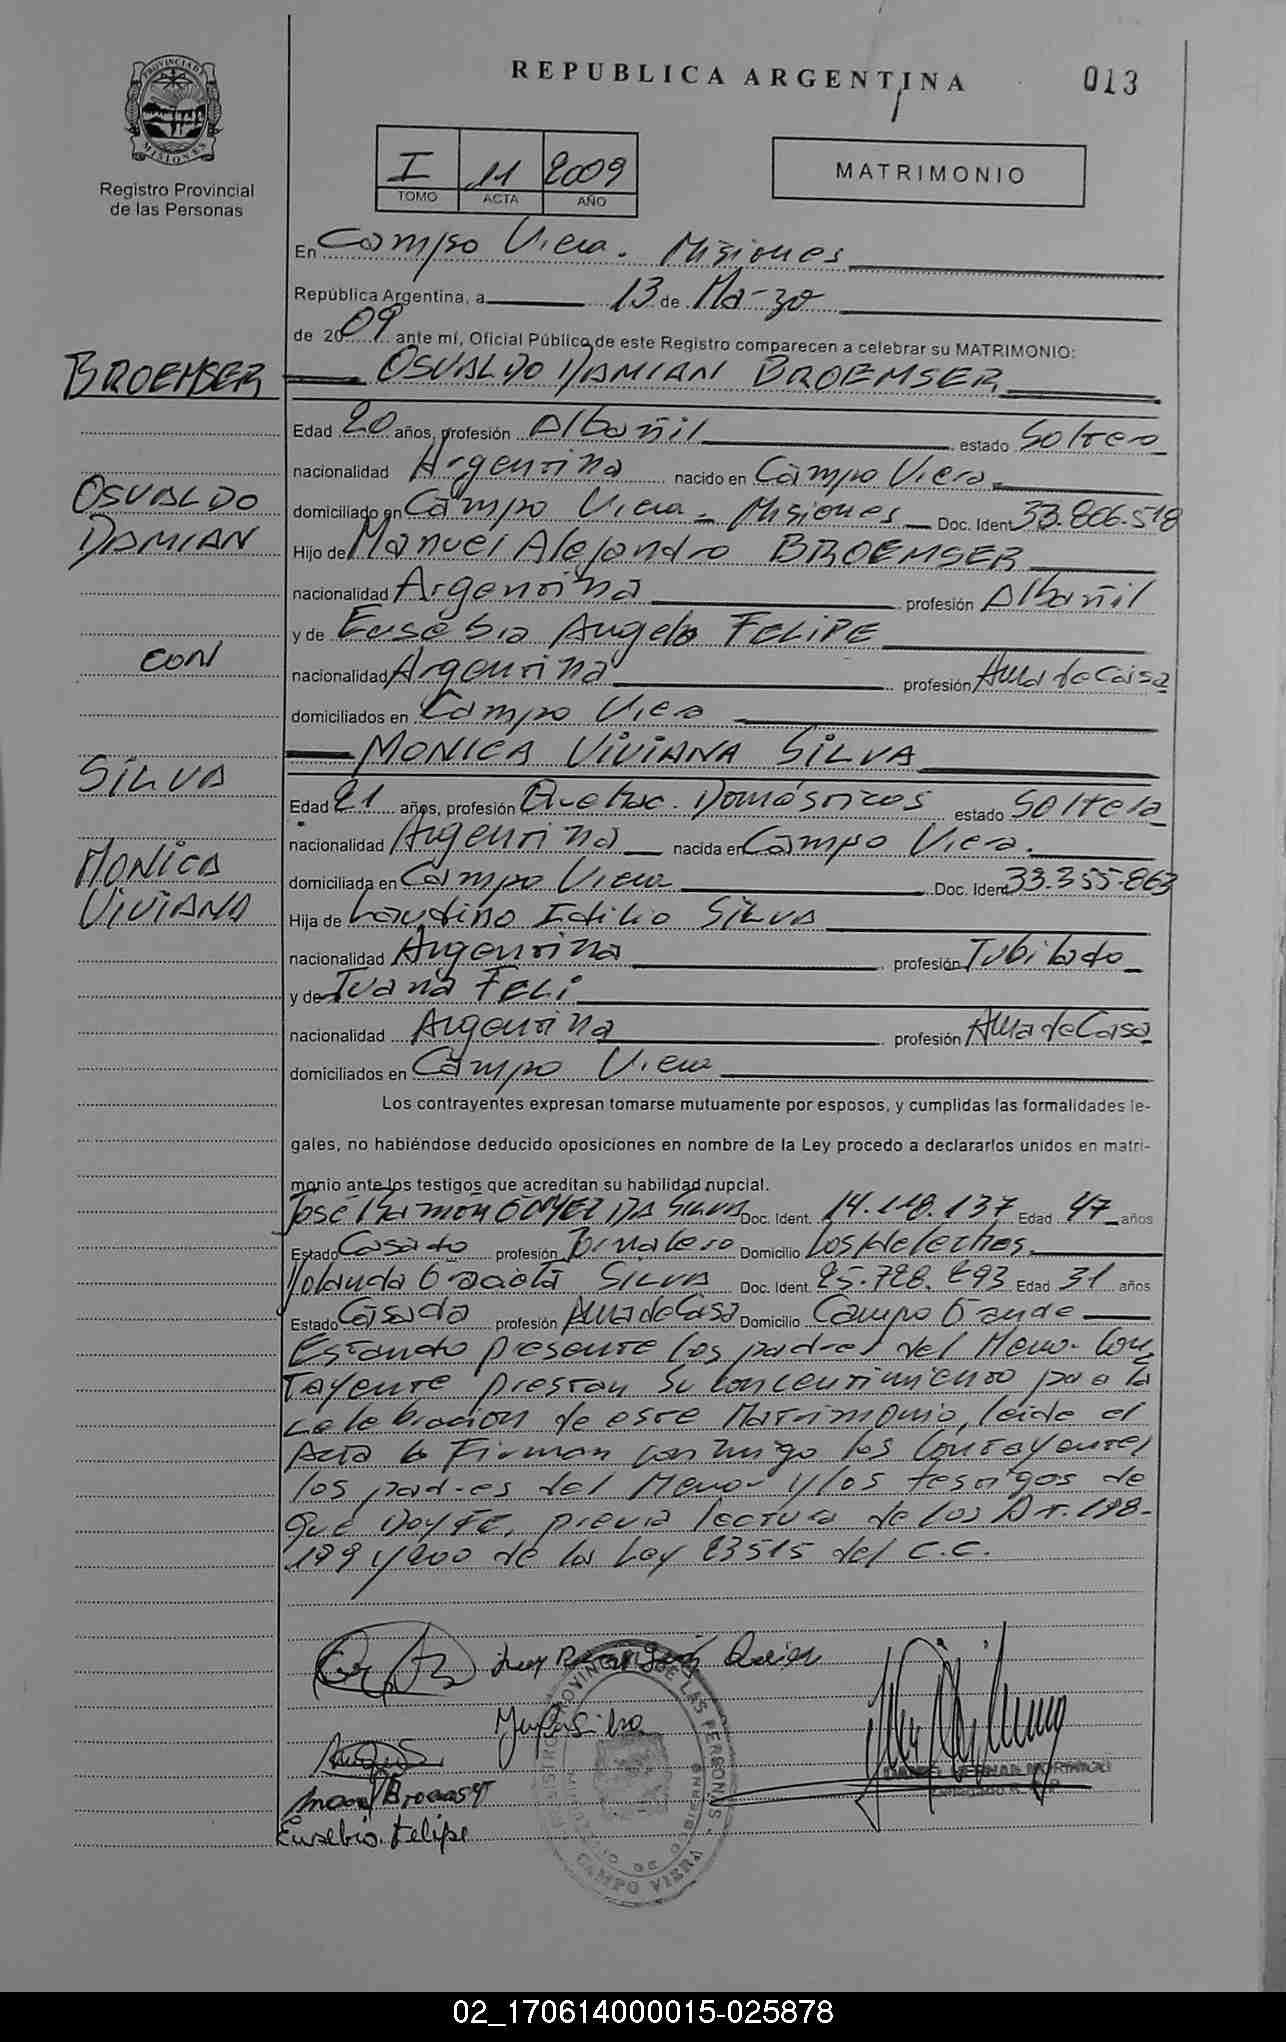 REPUBLICA ARGENTINA
013
PROVINCIA DE
MISIONES
Registro Provincial
de las Personas
I 11 2009
TOMO ACTA AÑO
MATRIMONIO
En Campo Viera. Misiones
República Argentina, a 13 de Marzo
de 2009 ante mí, Oficial Público de este Registro comparecen a celebrar su MATRIMONIO:
BROEMSER
OSVALDO DAMIAN BROEMSER
Edad 20 años, profesión Albañil estado Soltero
nacionalidad Argentina nacido en Campo Viera
OSVALDO
domiciliado en Campo Viera - Misiones Doc. Ident 33.806.518
DAMIAN
Hijo de Manuel Alejandro BROEMSER
nacionalidad Argentina profesión Albañil
y de Eusebia Angela FELIPE
CON
nacionalidad Argentina profesión Ama de Casa
domiciliados en Campo Viera
MONICA VIVIANA SILVA
SILVA
Edad 21 años, profesión Quehac. Domésticos estado Soltera
nacionalidad Argentina nacida en Campo Viera.
MONICA
domiciliada en Campo Viera Doc. Ident 33.355.863
VIVIANA
Hija de Laudino Idilio SILVA
nacionalidad Argentina profesión Jubilado
y de Juana FELI
nacionalidad Argentina profesión Ama de Casa
domiciliados en Campo Viera
Los contrayentes expresan tomarse mutuamente por esposos, y cumplidas las formalidades le-
gales, no habiéndose deducido oposiciones en nombre de la Ley procedo a declararlos unidos en matri-
monio ante los testigos que acreditan su habilidad nupcial.
José Ramón GOMEZ DA SILVA Doc. Ident. 14.118.137 Edad 47 años
Estado Casado profesión Jornalero Domicilio Los Helechos
Yolanda Graciela SILVA Doc. Ident. 25.728.293 Edad 31 años
Estado Casada profesión Ama de Casa Domicilio Campo Grande
Estando presente los padres del Menor Con
tayente prestan su concentimiento para la
celebracion de este Matrimonio, leida el
Acta la Firman conmigo los Contayentes
los padres del Menor y los testigos de
que Doy FE, previa lectura de los Art. 198-
199 y 200 de la Ley 23515 del C.C.
Eusebia Felipe
REGISTRO PROVINCIAL DE LAS PERSONAS
MINISTERIO DE GOBIERNO
CAMPO VIERA
02_170614000015-025878